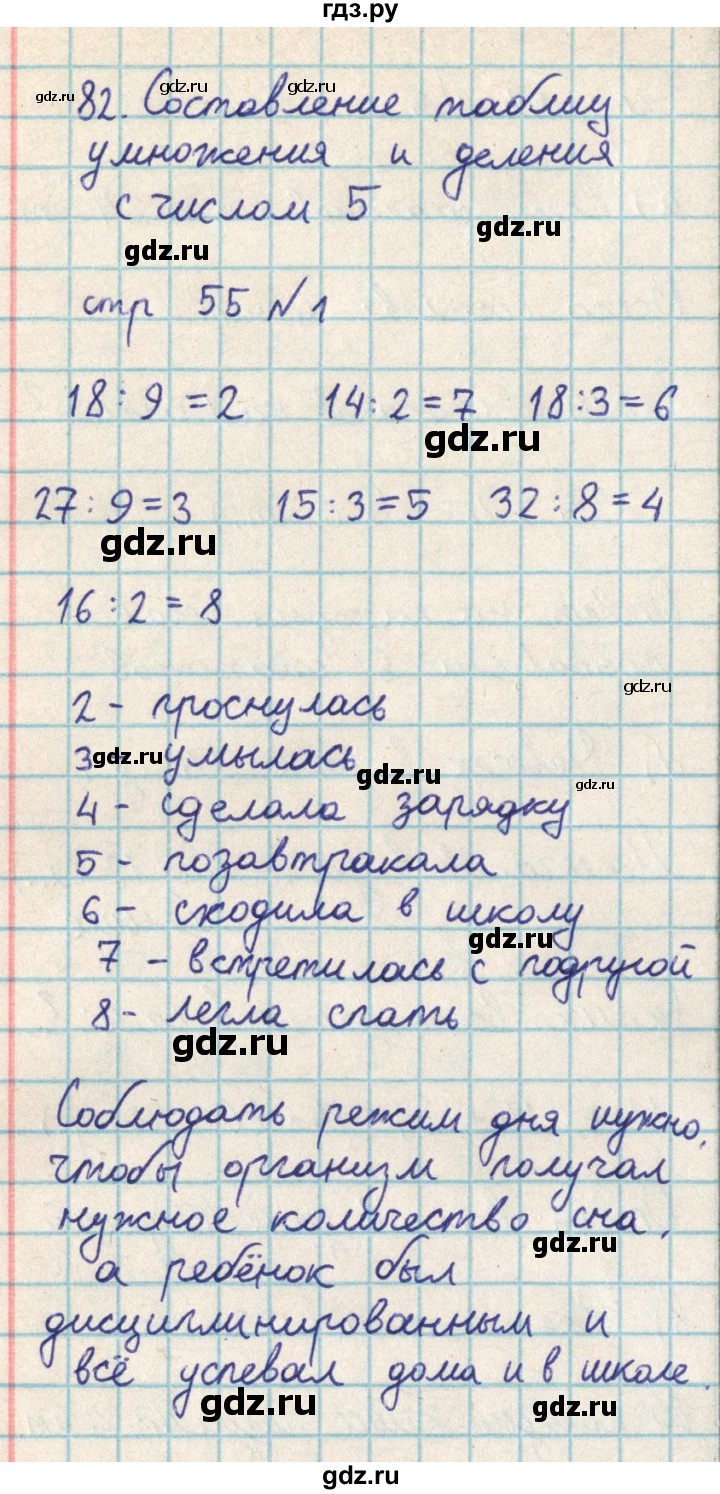 гдз.ру
gdz.ru
82. Составление таблиц
gdz.ru
умножения и деления
с числом 5
gdz.ru
gdz.ru
стр 55 №1
18:9=2 14:2=7 18:3=6
gdz.ru
27:9=3 15:3=5 32:8=4
gdz.ru
16:2=8
gdz.ru
2 - проснулась
3 - умылась
gdz.ru
gdz.ru
4 - сделала зарядку
5 - позавтракала
6 - сходила в школу
gdz.ru
7 - встретилась с подругой
8 - легла спать
gdz.ru
Соблюдать режим дня нужно,
чтобы организм получал
нужное количество сна,
gdz.ru
а ребёнок был
дисциплинированным и
всё успевал дома и в школе.
gdz.ru
gdz.ru
gdz.ru